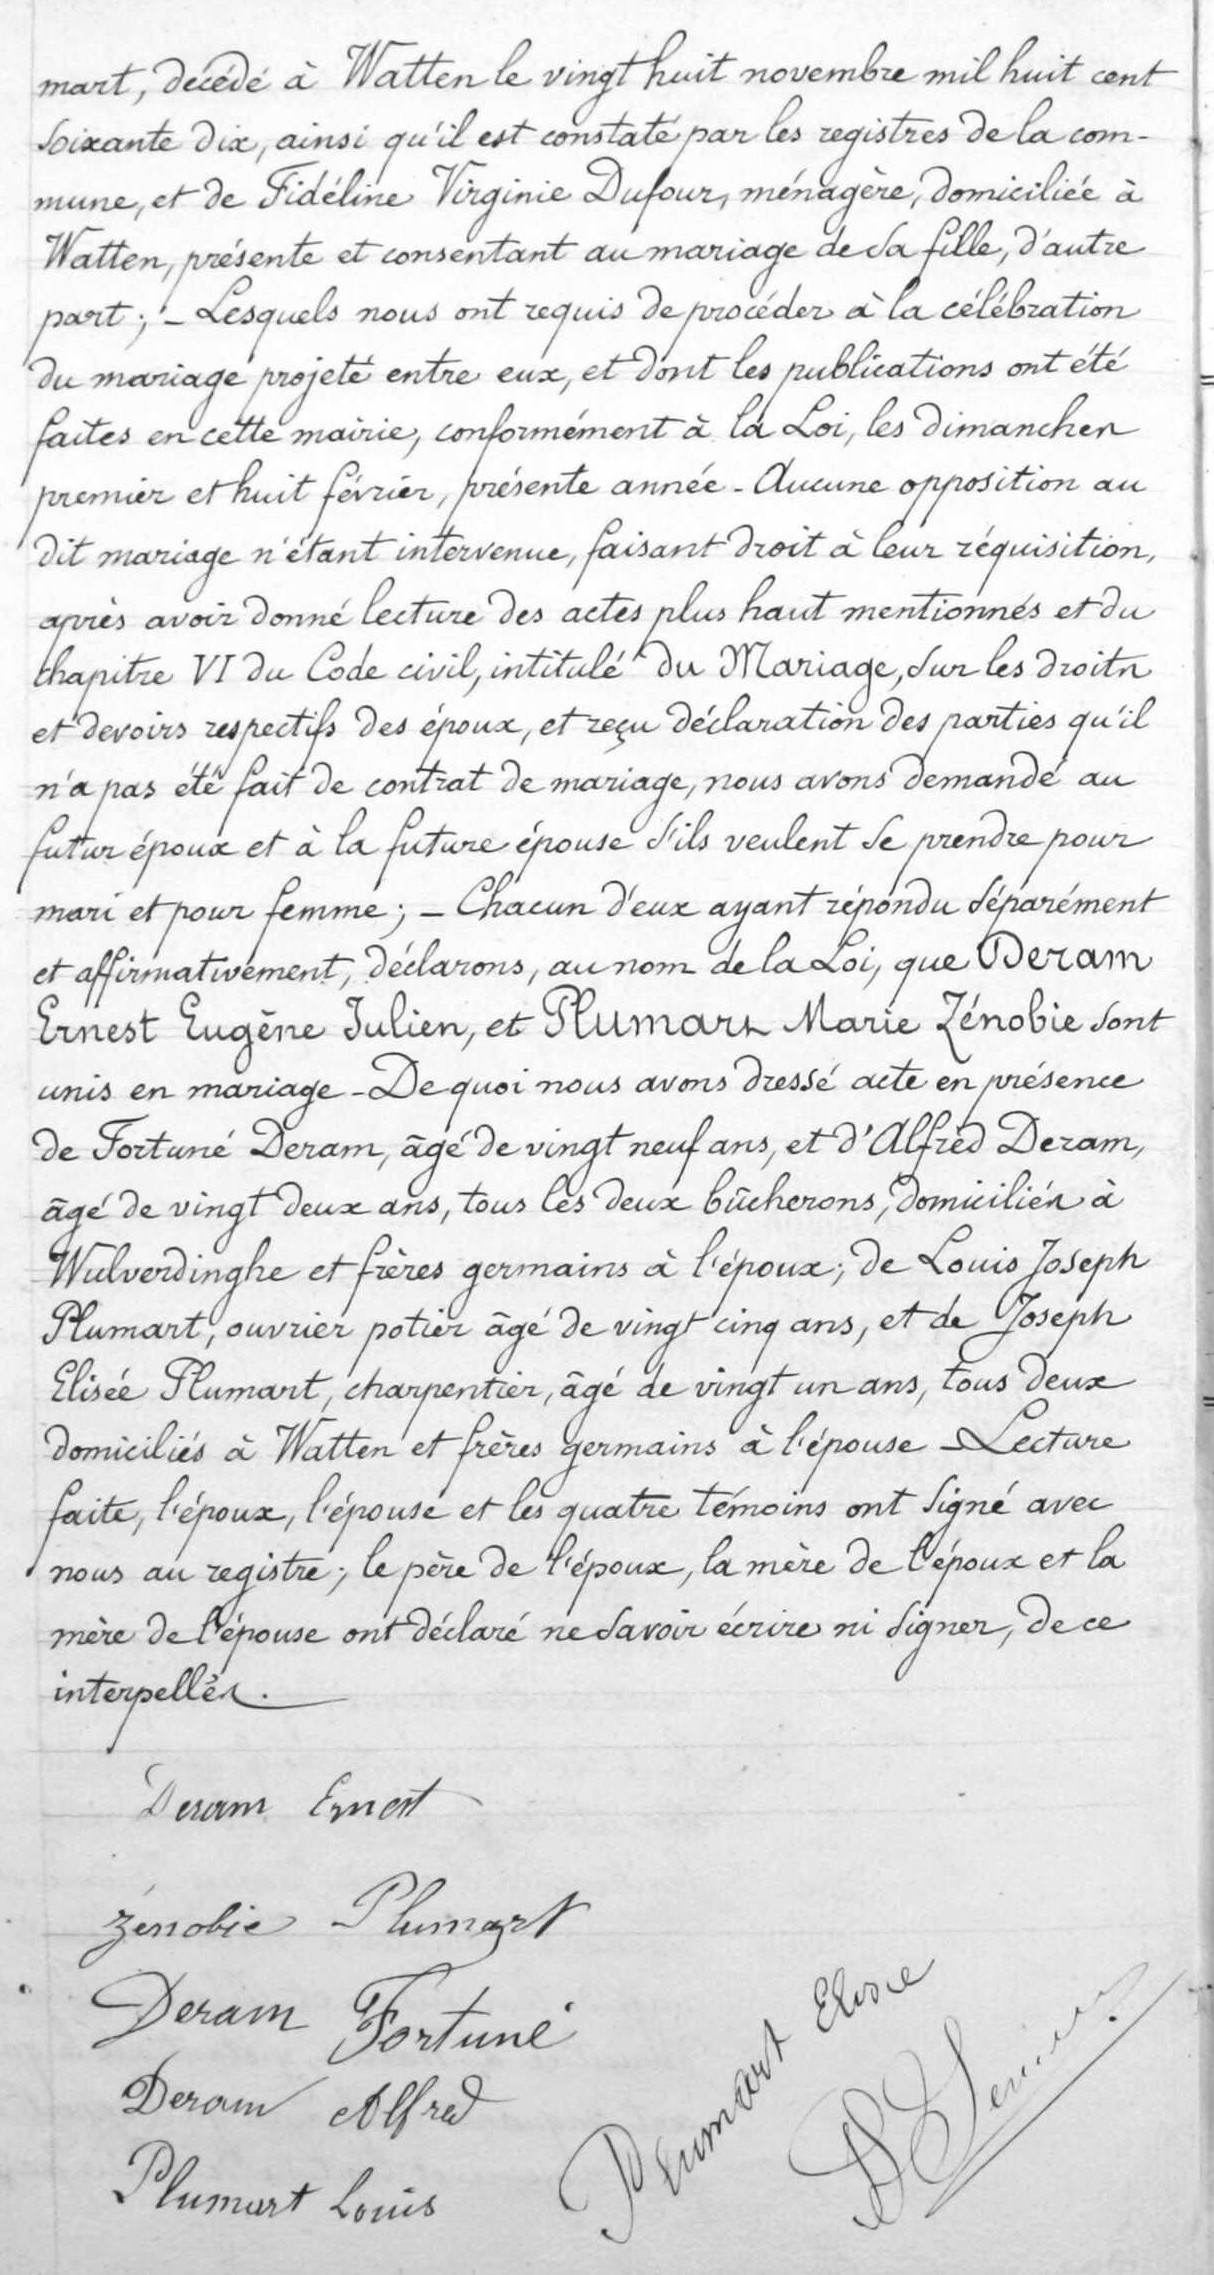 mart, décédé à Watten le vingt huit novembre mil huit cent
soixante dix, ainsi qu'il est constaté par les registres de la com-
mune, et de Fidéline Virginie Dufour, ménagère, domiciliée à
Watten, présente et consentant au mariage de sa fille, d'autre
part ; - Lesquels nous ont requis de procéder à la célébration
du mariage projeté entre eux, et dont les publications ont été
faites en cette mairie, conformément à la Loi, les dimanches
premier et huit février, présente année - Aucune opposition au
dit mariage n'étant intervenue, faisant droit à leur réquisition,
après avoir donné lecture des actes plus haut mentionnés et du
chapitre VI du Code civil, intitulé du Mariage, sur les droits
et devoirs respectifs des époux, et reçu déclaration des parties qu'il
n'a pas été fait de contrat de mariage, nous avons demandé au
futur époux et à la future épouse s'ils veulent se prendre pour
mari et pour femme ; - Chacun d'eux ayant répondu séparément
et affirmativement, déclarons, au nom de la Loi, que Deram
Ernest Eugène Julien, et Plumart Marie Zénobie sont
unis en mariage - De quoi nous avons dressé acte en présence
de Fortuné Deram, âgé de vingt neuf ans, et d'Alfred Deram,
âgé de vingt deux ans, tous les deux bûcherons, domiciliés à
Wulverdinghe et frères germains à l'époux ; de Louis Joseph
Plumart, ouvrier potier âgé de vingt cinq ans, et de Joseph
Elisée Plumart, charpentier, âgé de vingt un ans, tous deux
domiciliés à Watten et frères germains à l'épouse - Lecture
faite, l'époux, l'épouse et les quatre témoins ont signé avec
nous au registre ; le père de l'époux, la mère de l'époux et la
mère de l'épouse ont déclaré ne savoir écrire ni signer, de ce
interpellés.
Deram Ernest
Zénobie Plumart
Deram Fortuné
Deram Alfred
Plumart Louis
Plumart Elisée